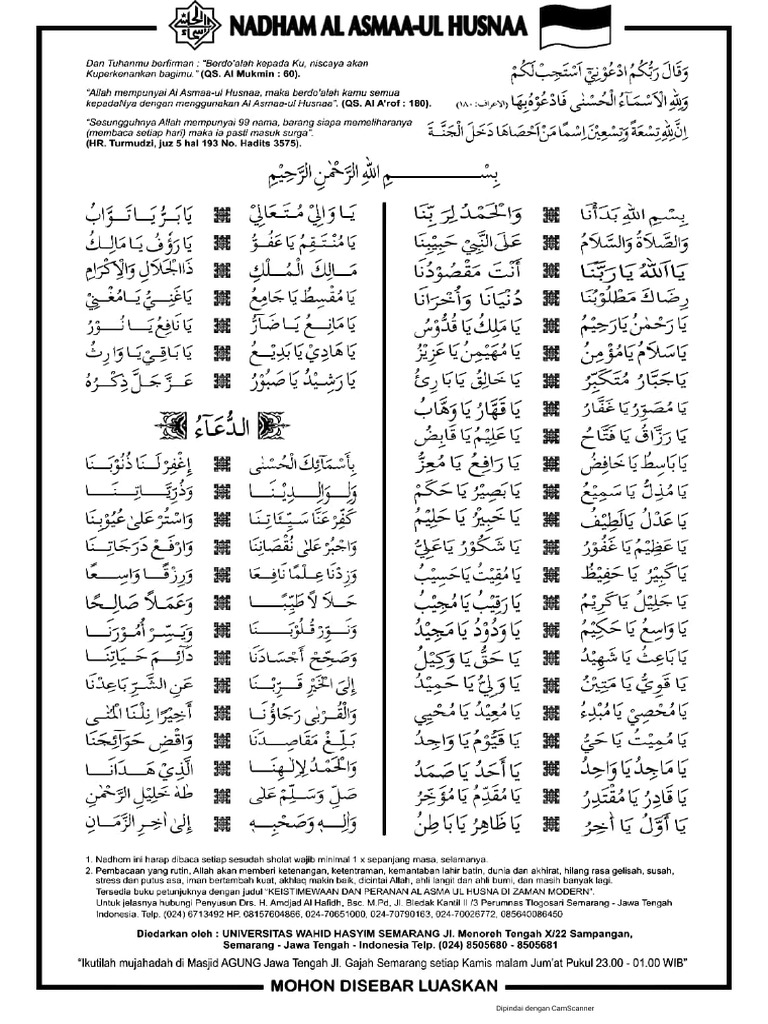 NADHAM AL ASMAA-UL HUSNAA
Dan Tuhanmu berfirman : "Berdo'alah kepada Ku, niscaya akan
Kuperkenankan bagimu." (QS. Al Mukmin : 60).
"Allah mempunyai Al Asmaa-ul Husnaa, maka berdo'alah kamu semua
kepadaNya dengan menggunakan Al Asmaa-ul Husnaa". (QS. Al A'rof : 180).
"Sesungguhnya Allah mempunyai 99 nama, barang siapa memeliharanya
(membaca setiap hari) maka ia pasti masuk surga".
(HR. Turmudzi, juz 5 hal 193 No. Hadits 3575).
وَقَالَ رَبُّكُمُ ادْعُوْنِيْٓ اَسْتَجِبْ لَكُمْ
وَلِلهِ الْاَسْمَآءُ الْحُسْنٰى فَادْعُوْهُ بِهَا (الاعراف: ١٨٠)
اِنَّ لِلهِ تِسْعَةً وَتِسْعِيْنَ اِسْمًا مَنْ اَحْصَاهَا دَخَلَ الْجَنَّةَ
بِسْمِ اللهِ الرَّحْمٰنِ الرَّحِيْمِ
بِسْمِ اللهِ بَدَأْنَا وَالْحَمْدُ لِرَبِّنَا
وَالصَّلَاةُ وَالسَّلَامُ عَلَى النَّبِيِّ حَبِيْبِنَا
يَا اَللهُ يَا رَبَّنَا اَنْتَ مَقْصُوْدُنَا
رِضَاكَ مَطْلُوْبُنَا دُنْيَانَا وَأُخْرَانَا
يَا رَحْمٰنُ يَارَحِيْمُ يَا مَلِكُ يَا قُدُّوْسُ
يَاسَلَامُ يَامُؤْمِنُ يَا مُهَيْمِنُ يَا عَزِيْزُ
يَا جَبَّارُ مُتَكَبِّرُ يَا خَالِقُ يَا بَارِئُ
يَا مُصَوِّرُ يَا غَفَّارُ يَا قَهَّارُ يَا وَهَّابُ
يَا رَزَّاقُ يَا فَتَّاحُ يَا عَلِيْمُ يَا قَابِضُ
يَا بَاسِطُ يَا خَافِضُ يَا رَافِعُ يَا مُعِزُّ
يَا مُذِلُّ يَا سَمِيْعُ يَا بَصِيْرُ يَا حَكَمُ
يَا عَدْلُ يَالَطِيْفُ يَا خَبِيْرُ يَا حَلِيْمُ
يَا عَظِيْمُ يَا غَفُوْرُ يَا شَكُوْرُ يَاعَلِيُّ
يَا كَبِيْرُ يَا حَفِيْظُ يَا مُقِيْتُ يَاحَسِيْبُ
يَا جَلِيْلُ يَا كَرِيْمُ يَا رَقِيْبُ يَا مُجِيْبُ
يَا وَاسِعُ يَا حَكِيْمُ يَا وَدُوْدُ يَا مَجِيْدُ
يَا بَاعِثُ يَا شَهِيْدُ يَا حَقُّ يَا وَكِيْلُ
يَا قَوِيُّ يَا مَتِيْنُ يَا وَلِيُّ يَا حَمِيْدُ
يَا مُحْصِيْ يَا مُبْدِءُ يَا مُعِيْدُ يَا مُحْيِي
يَا مُمِيْتُ يَا حَيُّ يَا قَيُّوْمُ يَا وَاجِدُ
يَا مَاجِدُ يَا وَاحِدُ يَا اَحَدُ يَا صَمَدُ
يَا قَادِرُ يَا مُقْتَدِرُ يَا مُقَدِّمُ يَا مُؤَخِّرُ
يَا أَوَّلُ يَا أٰخِرُ يَا ظَاهِرُ يَا بَاطِنُ
يَا وَالِيْ مُتَعَالِيْ يَا بَرُّ يَا تَوَّابُ
يَا مُنْتَقِمُ يَا عَفُوُّ يَا رَؤُفُ يَا مَالِكُ
مَالِكَ الْمُلْكِ ذَاالْجَلَالِ وَالْاِكْرَامِ
يَا مُقْسِطُ يَا جَامِعُ يَاغَنِيُّ يَا مُغْنِيْ
يَا مَانِعُ يَا ضَآرُّ يَا نَافِعُ يَا نُوْرُ
يَا هَادِيْ يَا بَدِيْعُ يَا بَاقِيْ يَا وَارِثُ
يَا رَشِيْدُ يَا صَبُوْرُ عَزَّ جَلَّ ذِكْرُهُ
الدُّعَآءُ
بِأَسْمَائِكَ الْحُسْنٰى اِغْفِرْ لَنَا ذُنُوْبَنَا
وَلِوَالِدِيْنَا وَذُرِّيَّاتِنَا
كَفِّرْ عَنَّا سَيِّئَاتِنَا وَاسْتُرْ عَلٰى عُيُوْبِنَا
وَاجْبُرْ عَلٰى نُقْصَانِنَا وَارْفَعْ دَرَجَاتِنَا
وَزِدْنَا عِلْمًا نَافِعًا وَرِزْقًا وَاسِعًا
حَلَالًا طَيِّبًا وَعَمَلًا صَالِحًا
وَنَوِّرْ قُلُوْبَنَا وَيَسِّرْ أُمُوْرَنَا
وَصَحِّحْ أَجْسَادَنَا دَآئِمَ حَيَاتِنَا
إِلَى الْخَيْرِ قَرِّبْنَا عَنِ الشَّرِّ بَاعِدْنَا
وَالْقُرْبٰى رَجَاؤُنَا أَخِيْرًا نِلْنَا الْمُنٰى
بَلِّغْ مَقَاصِدَنَا وَاقْضِ حَوَآئِجَنَا
وَالْحَمْدُ لِاِلٰهِنَا الَّذِيْ هَدَانَا
صَلِّ وَسَلِّمْ عَلٰى طٰهٰ خَلِيْلِ الرَّحْمٰنِ
وَاٰلِهِ وَصَحْبِهِ إِلٰى اٰخِرِ الزَّمَانِ
1. Nadhom ini harap dibaca setiap sesudah sholat wajib minimal 1 x sepanjang masa, selamanya.
2. Pembacaan yang rutin, Allah akan memberi ketenangan, ketentraman, kemantaban lahir batin, dunia dan akhirat, hilang rasa gelisah, susah,
stress dan putus asa, iman bertambah kuat, akhlaq makin baik, dicintai Allah, ahli langit dan ahli bumi, dan masih banyak lagi.
Tersedia buku petunjuknya dengan judul "KEISTIMEWAAN DAN PERANAN AL ASMA UL HUSNA DI ZAMAN MODERN".
Untuk jelasnya hubungi Penyusun Drs. H. Amdjad Al Hafidh, Bsc. M.Pd, Jl. Bledak Kantil II /3 Perumnas Tlogosari Semarang - Jawa Tengah
Indonesia. Telp. (024) 6713492 HP. 08157604866, 024-70651000, 024-70790163, 024-70026772, 085640086450
Diedarkan oleh : UNIVERSITAS WAHID HASYIM SEMARANG Jl. Menoreh Tengah X/22 Sampangan,
Semarang - Jawa Tengah - Indonesia Telp. (024) 8505680 - 8505681
"Ikutilah mujahadah di Masjid AGUNG Jawa Tengah Jl. Gajah Semarang setiap Kamis malam Jum'at Pukul 23.00 - 01.00 WIB"
MOHON DISEBAR LUASKAN
Dipindai dengan CamScanner